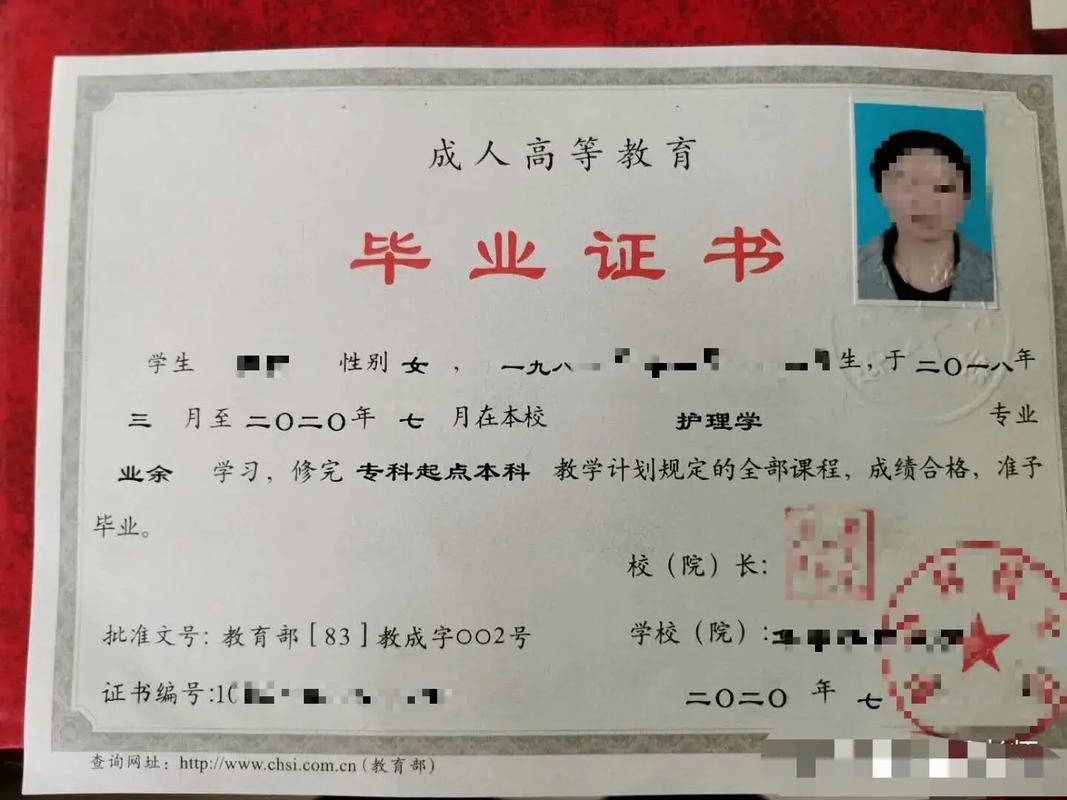 成人高等教育
毕业证书
学生 性别 女 ， 一九八 生，于 二〇一八 年
三 月至 二〇二〇 年 七 月在本校 护理学 专业
业余 学习，修完 专科起点本科 教学计划规定的全部课程，成绩合格，准予
毕业。
校（院）长：
批准文号：教育部［83］教成字〇〇2号
学校（院）：
证书编号：10
二〇二〇 年 七
查询网址：http://www.chsi.com.cn（教育部）